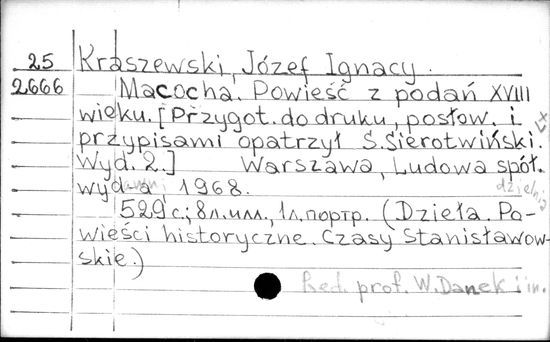 25 Kraszewski, Józef Ignacy.
2666 Macocha. Powieść z podań XVIII
wieku. [Przygot. do druku, posłow. i
przypisami opatrzył S. Sierotwiński.
Wyd. 2.] Warszawa, Ludowa spół.
wyd-a 1968. dzielni
529 с.; 8 л. илл., 1 л. портр. (Dzieła. Po-
wieści historyczne. Czasy Stanisławow-
skie.)
Red. prof. W. Danek i in.